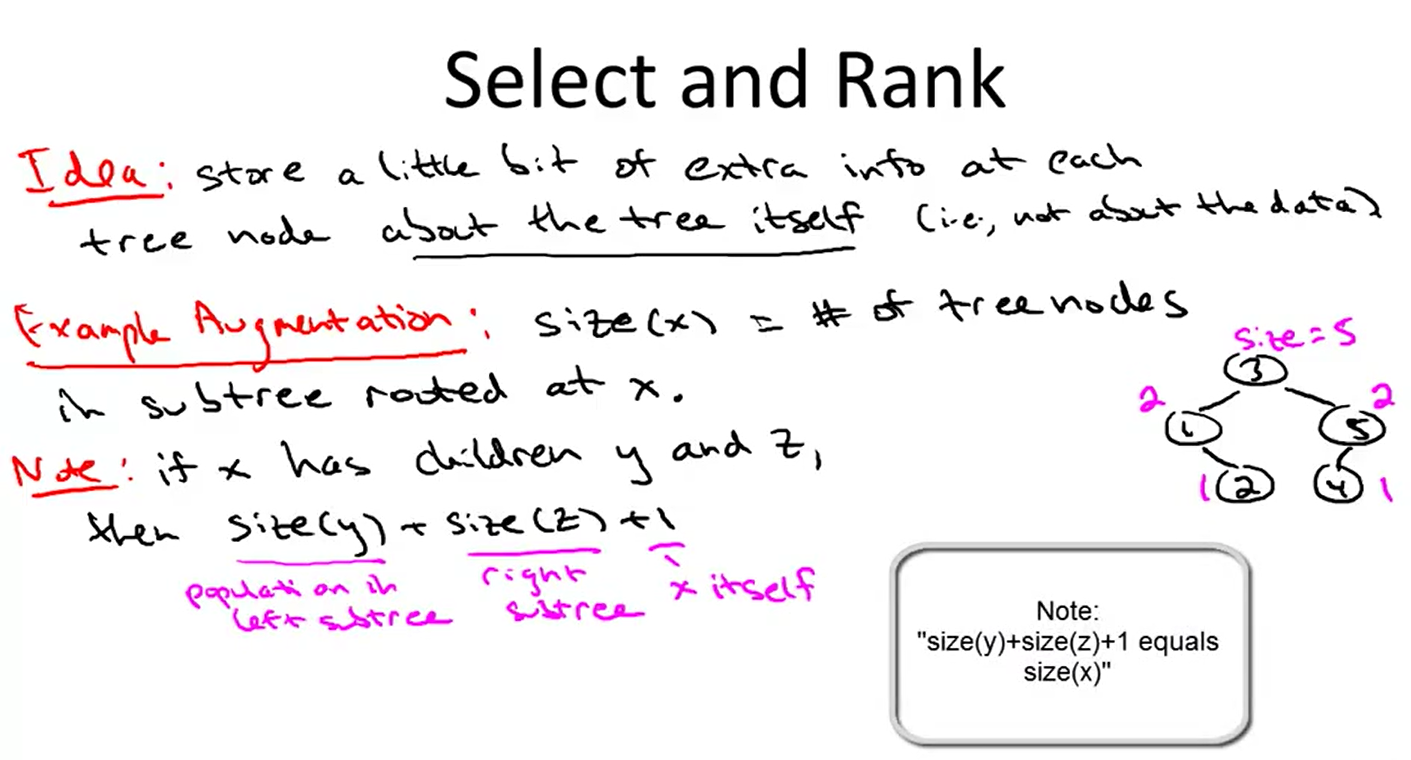 Select and Rank
Idea: store a little bit of extra info at each
tree node about the tree itself (i.e., not about the data)
Example Augmentation: size(x) = # of tree nodes
in subtree rooted at x.
size = 5
3
2
2
1
5
1
2
4
1
Note: if x has children y and z,
then size(y) + size(z) + 1
population in
left subtree
right
subtree
x itself
Note:
"size(y)+size(z)+1 equals
size(x)"